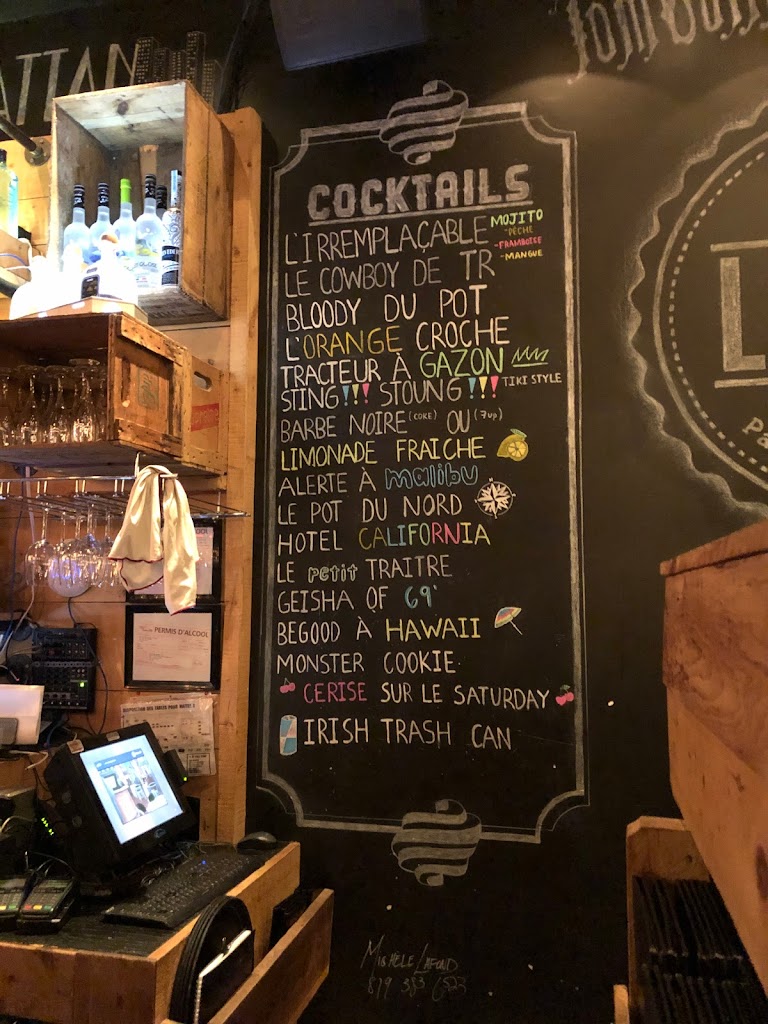 ATTAN
COCKTAILS
L'IRREMPLAÇABLE MOJITO
-PÊCHE
-FRAMBOISE
-MANGUE
LE COWBOY DE TR
BLOODY DU POT
L'ORANGE CROCHE
TRACTEUR À GAZON
STING!!! STOUNG!!! TIKI STYLE
BARBE NOIRE (COKE) OU (7up)
LIMONADE FRAICHE
ALERTE À malibu
LE POT DU NORD
HOTEL CALIFORNIA
LE petit TRAITRE
GEISHA OF 69'
BEGOOD À HAWAII
MONSTER COOKIE
CERISE SUR LE SATURDAY
IRISH TRASH CAN
PERMIS D'ALCOOL
L